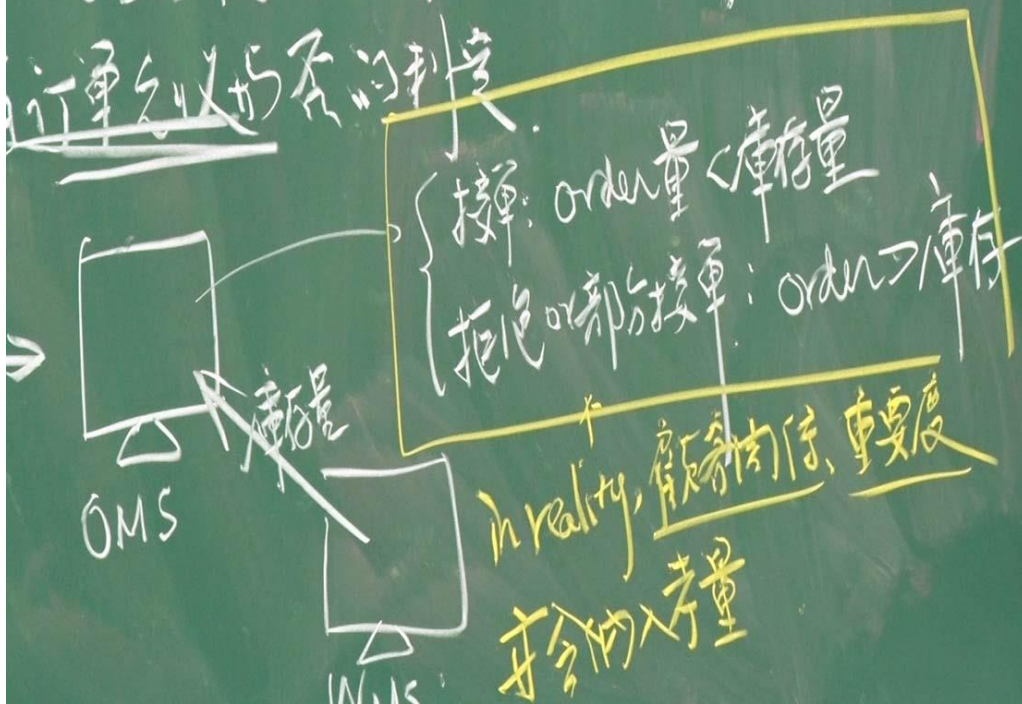 訂單允以与否的判定.
接單: order量<庫存量
拒絕or部分接單: order>庫存
庫存量
OMS
in reality, 顧客関係、重要度
亦会納入考量
WMS